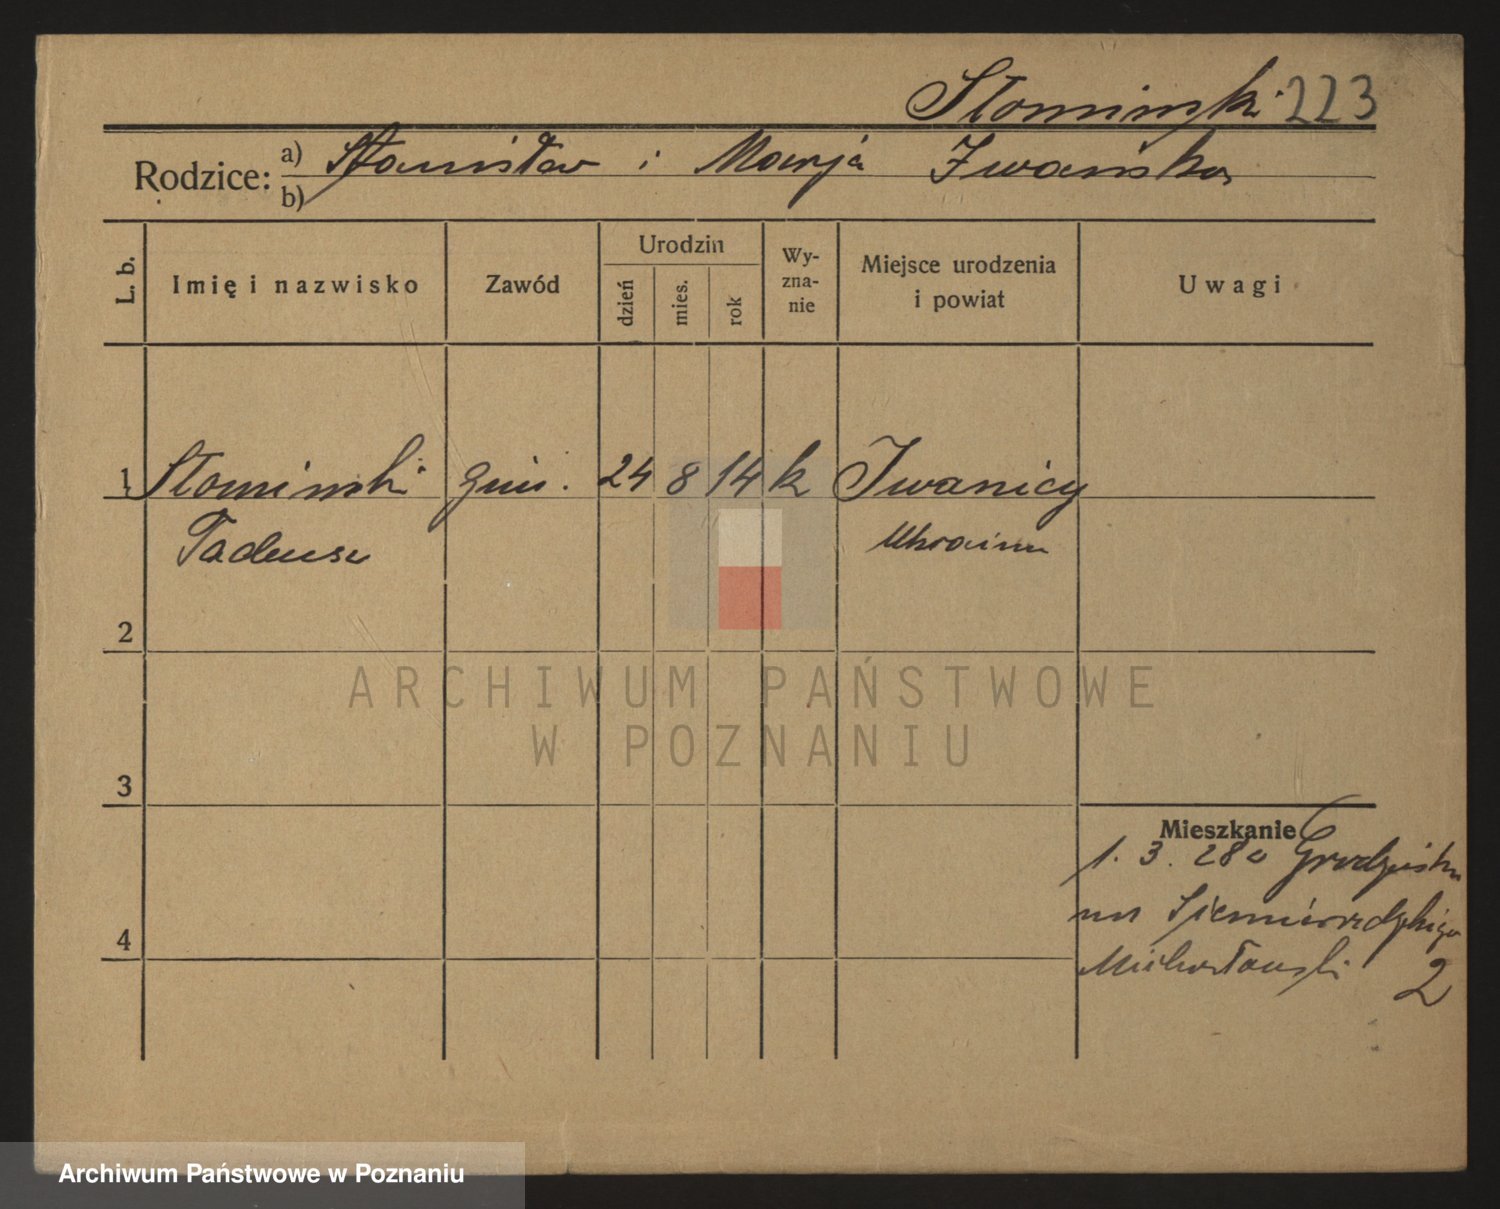 Słominski 223
Rodzice: a) Stanisław i Marja Iwańska
b)
L. b. Imię i nazwisko Zawód Urodzin Wy-zna-nie Miejsce urodzenia i powiat Uwagi
dzień mies. rok
1 Słominski gim. 24 8 14 k Iwanicy
Tadeusz Ukraina
2
ARCHIWUM PAŃSTWOWE
W POZNANIU
3
Mieszkanie
1. 3. 28
4
2
Archiwum Państwowe w Poznaniu